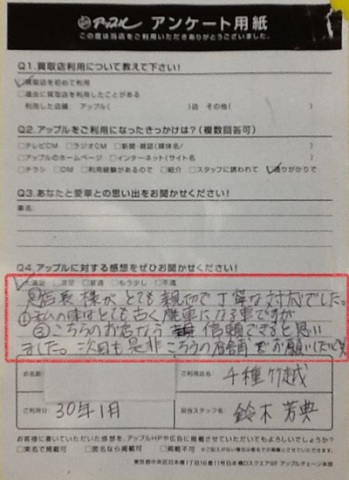 アップル アンケート用紙
この度は当店をご利用いただきありがとうございました。
Q1.買取店利用について教えて下さい!
買取店を初めて利用
□過去に買取店を利用したことがある
利用した店舗 アップル( )店 その他( )
Q2.アップルをご利用になったきっかけは?(複数回答可)
□テレビCM □ラジオCM □新聞・雑誌(媒体名/ )
□アップルのホームページ □インターネット(サイト名 )
□チラシ □DM □利用経験があるので □紹介 □スタッフに誘われて 通りがかりで
Q3.あなたと愛車との思い出をお聞かせください!
車名:
Q4.アップルに対する感想をぜひお聞かせください!
大満足 □満足 □普通 □もう少し □不満
①店長様が とても親切で丁寧な対応でした。
①私の車はとても古く廃車になる車ですが
②こちらのお店なら 信頼できると思い
ました。次回も是非 こちらの店舗をお願いしたい
お名前
ご利用店名 千種竹越
ご利用日 30年1月
担当スタッフ名 鈴木芳典
お客様に書いていただいた感想を、アップルHPや広告に掲載させていただいてもよろしいでしょうか?
□実名で掲載可 □匿名なら掲載可 □掲載不可